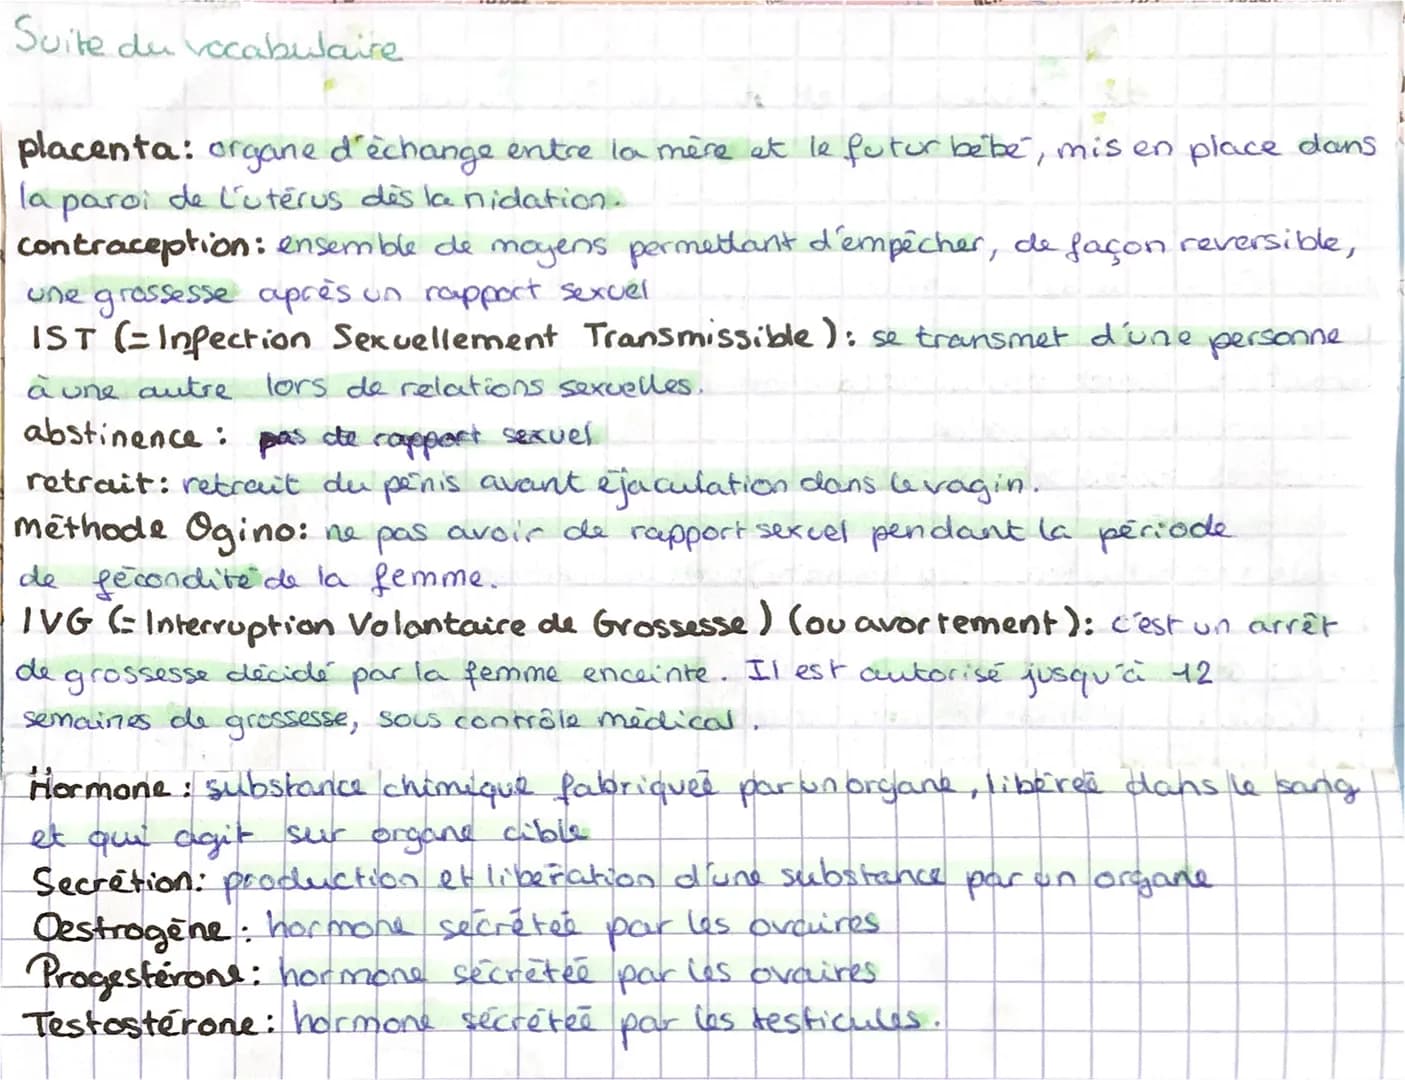 Suite du vocabulaire
placenta: organe d'échange entre la mère et le futur bébé, mis en place dans
la paroi de l'utérus dès la nidation.
contraception: ensemble de moyens permettant d'empêcher, de façon reversible,
une grossesse après un rapport sexuel
IST (= Infection Sexuellement Transmissible): se transmet d'une personne
à une autre lors de relations sexuelles.
abstinence: pas de rapport sexuel
retrait: retrait du pénis avant éjaculation dans le vagin.
méthode Ogino: ne pas avoir de rapport sexuel pendant la période
de fécondité de la femme.
IVG (= Interruption Volontaire de Grossesse) (ou avortement): c'est un arrêt
de grossesse décidé par la femme enceinte. Il est autorisé jusqu'à 12
semaines de grossesse, sous contrôle médical.
Hormone: substance chimique fabriqueé par un organe, libéreé dans le sang
et qui agit sur organe cible
Secrétion: production et libération d'une substance par un organe
Oestrogène: hormone secréteé par les ovaires
Progestérone: hormone sécrétéé par les ovaires
Testostérone: hormone sécrétéé par les testicules.